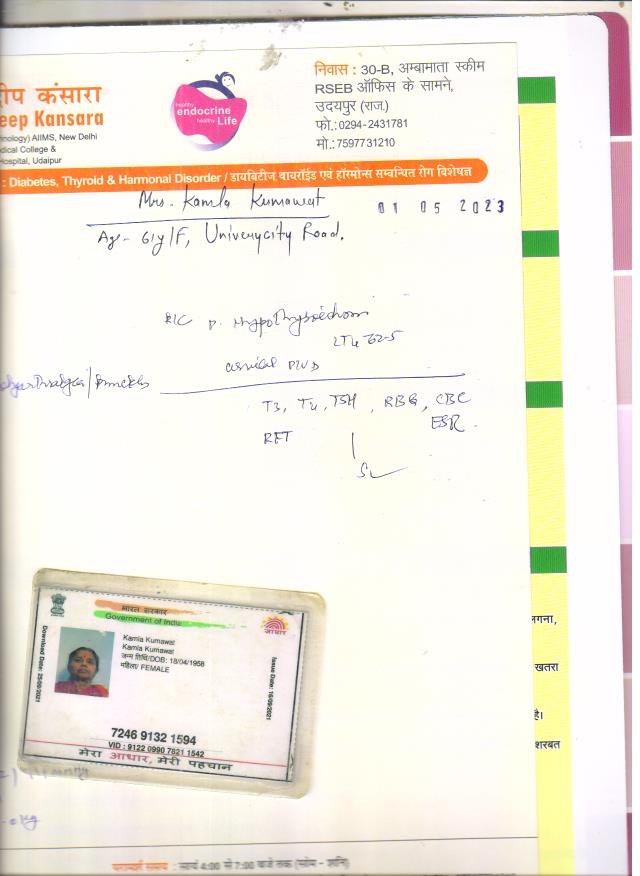 निवास : 30-B, अम्बामाता स्कीम
RSEB ऑफिस के सामने,
उदयपुर (राज.)
फो.:0294-2431781
मो.:7597731210
ीप कंसारा
eep Kansara
nology) AIIMS, New Delhi
dical College &
Hospital, Udaipur
healthy
endocrine
healthy Life
: Diabetes, Thyroid & Harmonal Disorder / डायबिटीज, थायरॉईड एवं हॉरमोन्स सम्बन्धित रोग विशेषज्ञ
Mrs. Kamla Kumawat
01 05 2023
Age- 61y/F, Univerycity Road.
Hypothyroidism
T3, T4, TSH, RBG, CBC
ESR
RFT
भारत सरकार
Government of India
आधार
Kamla Kumawat
Kamla Kumawat
जन्म तिथि/DOB: 18/04/1958
महिला/ FEMALE
Download Date: 25/09/2021
Issue Date: 16/09/2021
7246 9132 1594
VID : 9122 0990 7821 1542
मेरा आधार, मेरी पहचान
लगना,
खतरा
है।
शरबत
परामर्श समय : सायं 4:00 से 7:00 बजे तक (सोम - शनि)